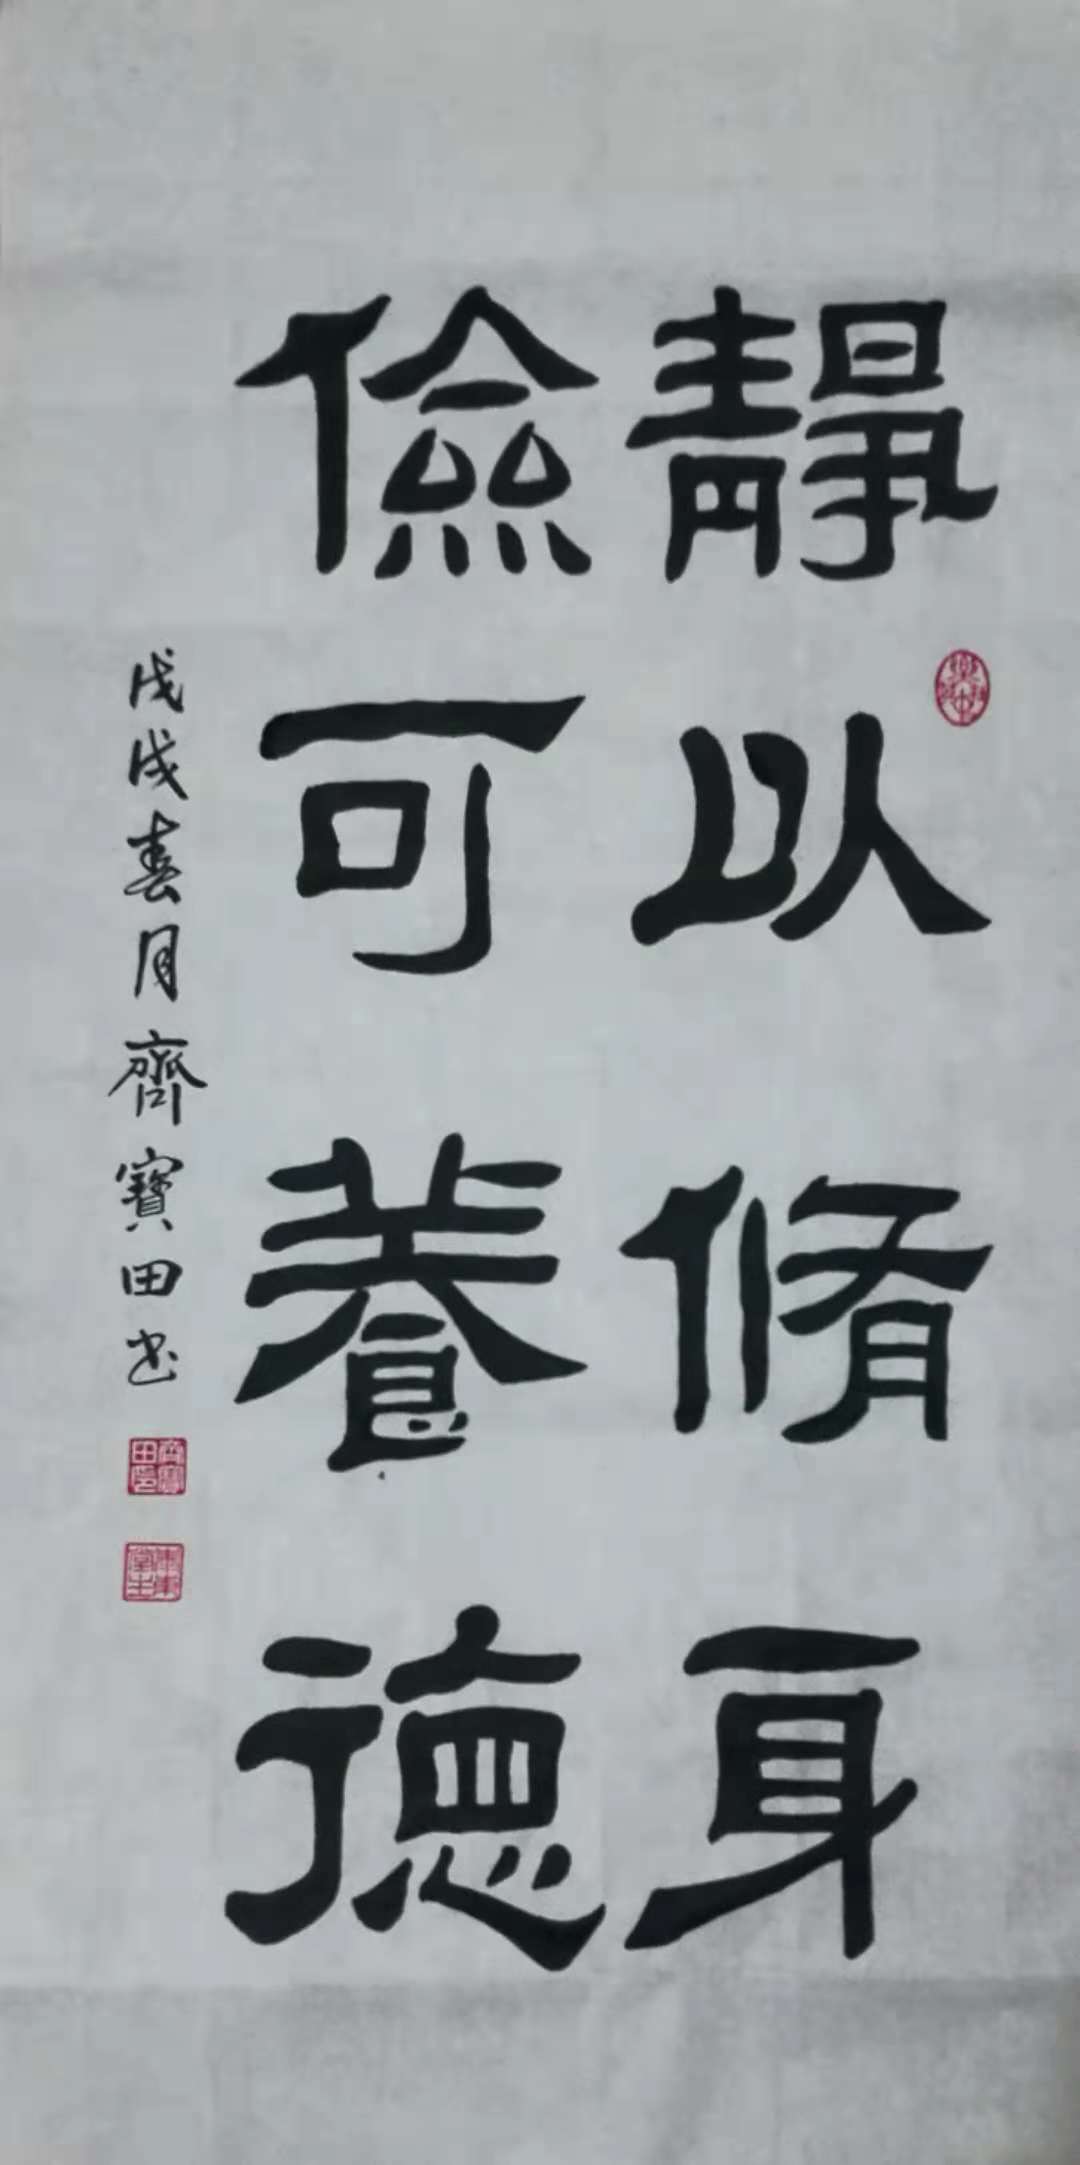 靜以脩身
儉可養德
戊戌春月齊寶田书
齊寶田印